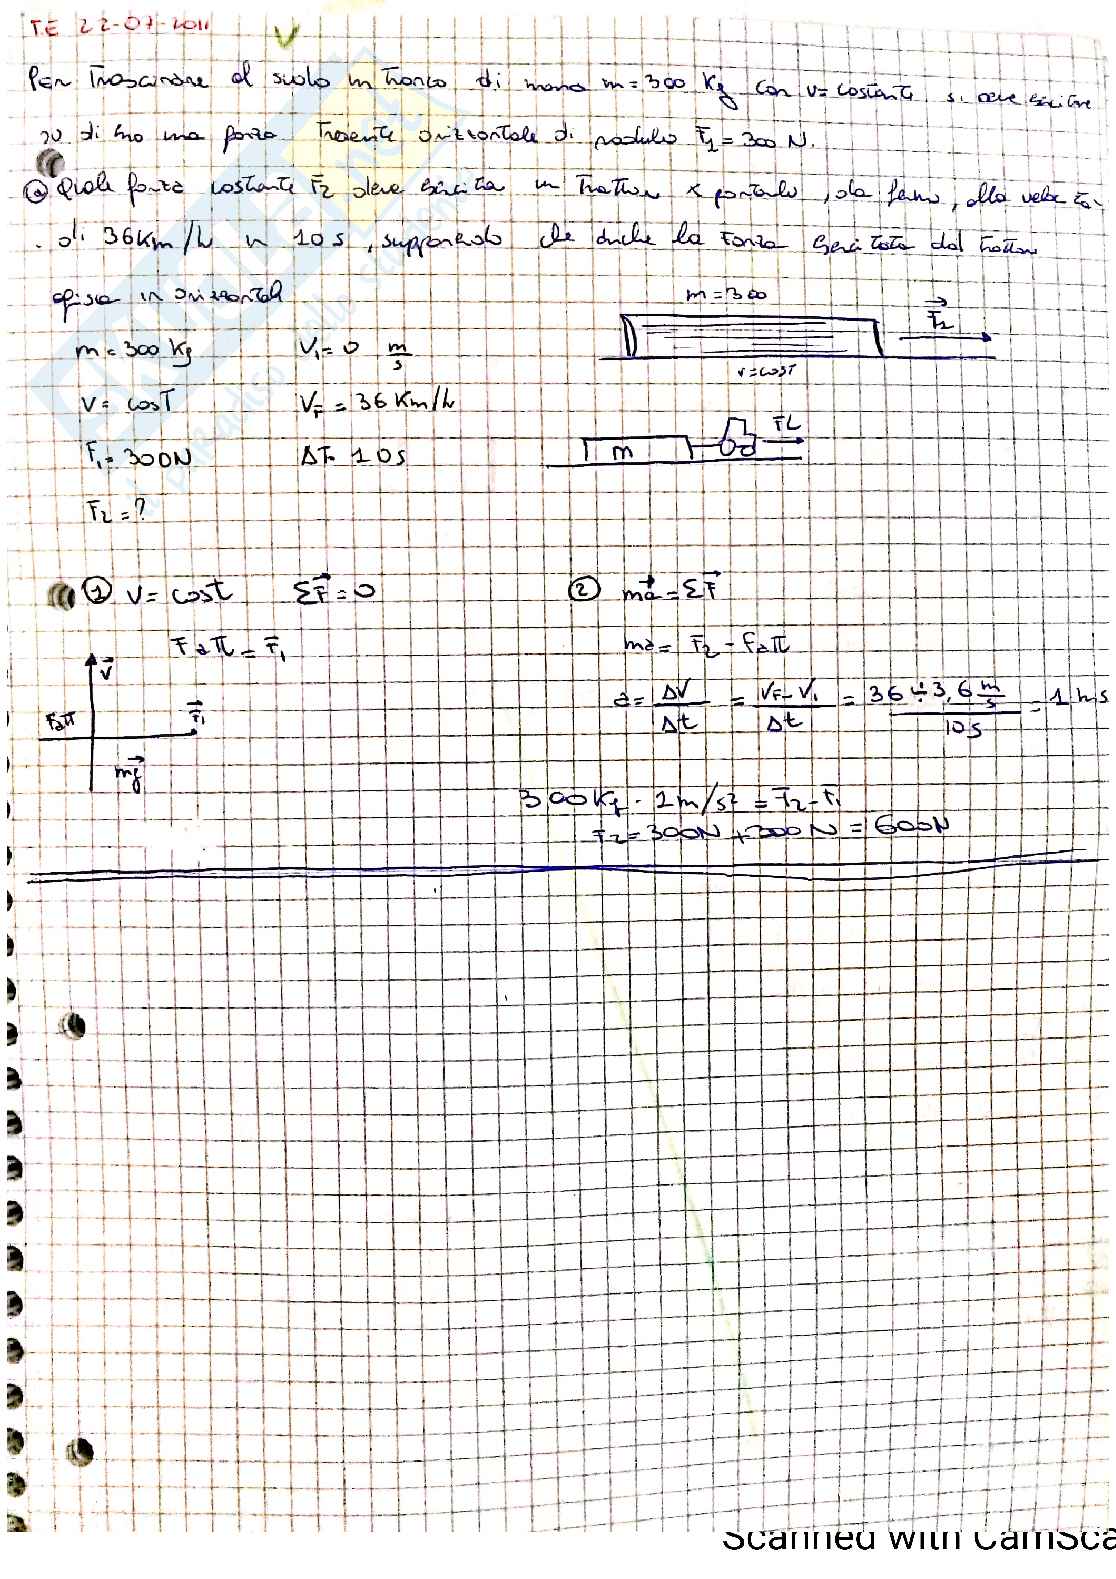 T.E 22-07-2011
Per Trascinare al suolo un Tronco di massa m=300 Kg con v=costante si deve esercitare
su di esso una forza Traente orizzontale di modulo F1=300 N.
a Quale forza costante F2 deve esercitare un Trattore x portarlo, da fermo, alla velocità
di 36Km/h in 10 s, supponendo che anche la Forza esercitata dal trattore
agisca in orizzontale
m=300
F2
v=cost
m=300 Kg V1=0 m/s
V= cosT VF=36 Km/h
F1=300N ΔT= 10s
F2=?
m
F2
① v=cost ΣF=0
Fatt=F1
V
Fatt
F1
mg
② ma=ΣF
ma= F2-Fatt
a= ΔV/Δt = VF-V1/Δt = 36÷3,6 m/s / 10s = 1 ms
300Kg · 1m/s² = F2-F1
F2=300N+300N=600N
Scanned with CamSca